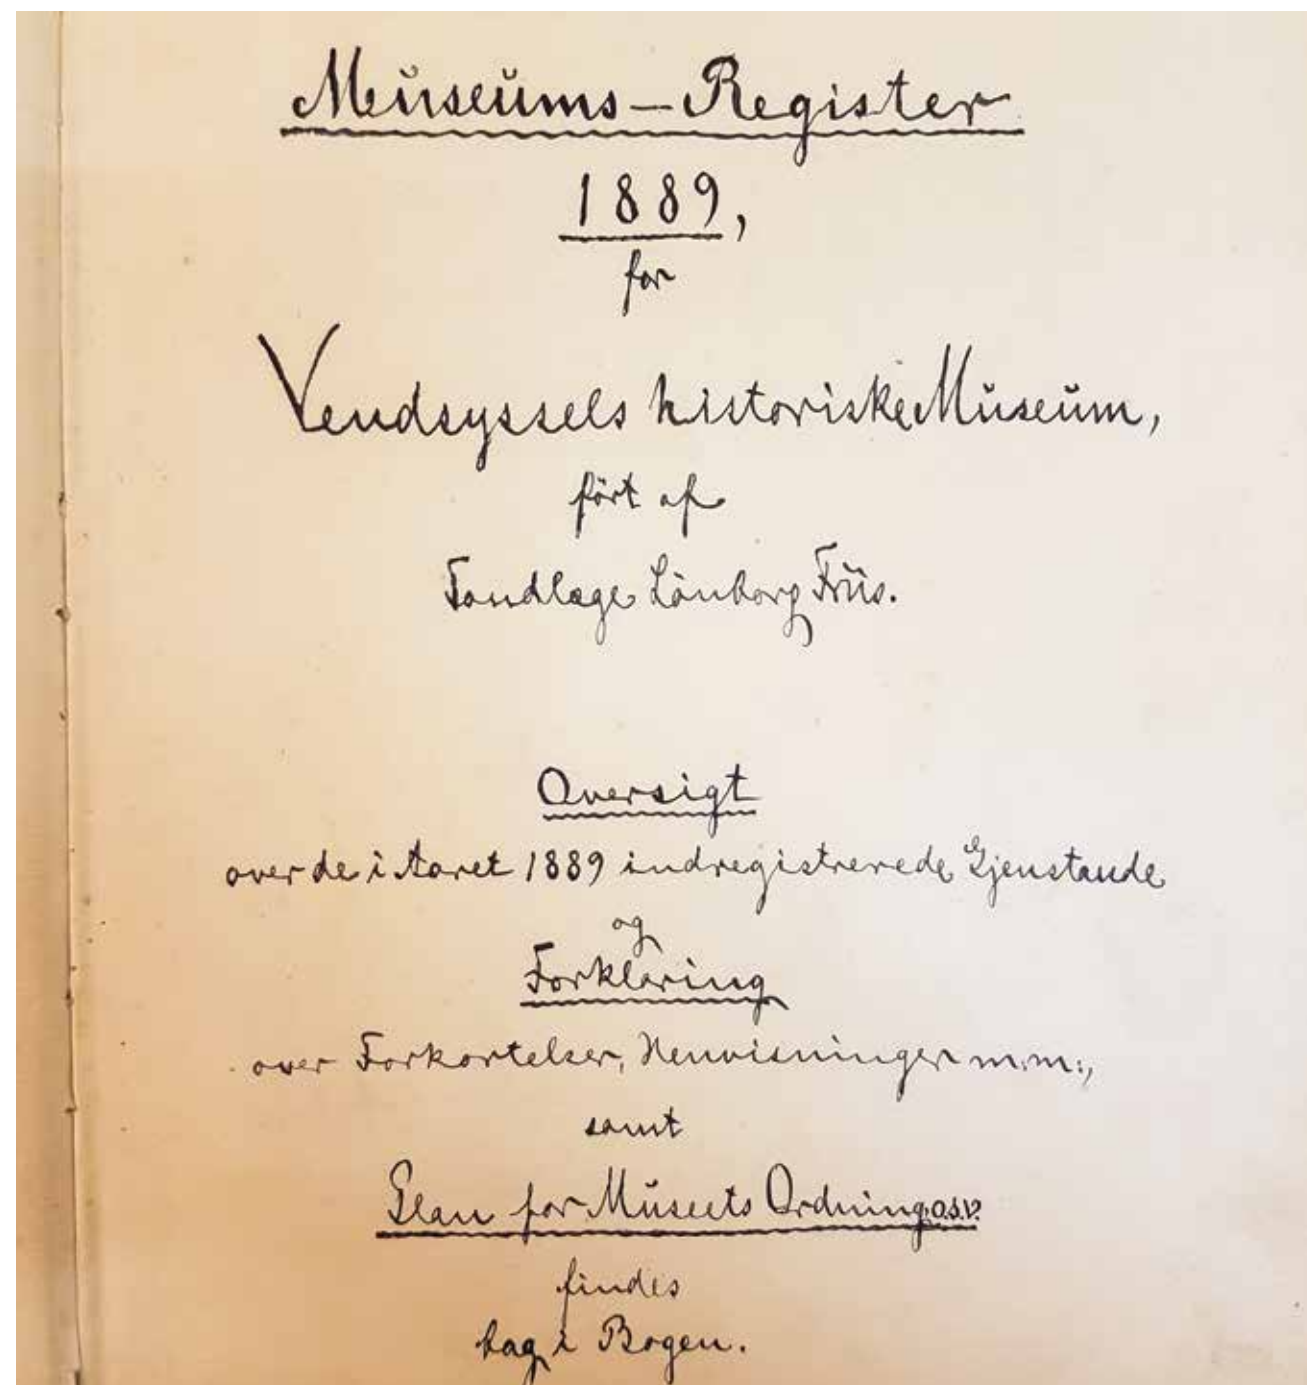 Museums-Register
1889,
for
Vendsyssels historiske Museum,
ført af
Tandlæge Lønborg Friis.
Oversigt
over de i Aaret 1889 indregistrerede Gjenstande
og
Forklaring
over Forkortelser, Henvisninger m:m:,
samt
Plan for Museets Ordning o.s.v.
findes
bag i Bogen.